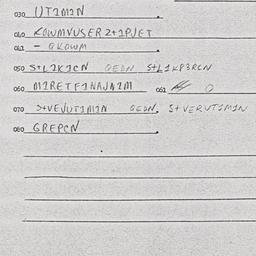 030 UT1M1N
040 KOWMVUSER 2+1PJET
041 - QKOWM
050 S+L1K1CN QEDN S+L1KP3RCN
060 M1RETF1NAJN1M 061 O
070 S+VEVUT1M1N QEDN, S+VERUT1M1N
080 GREPCN